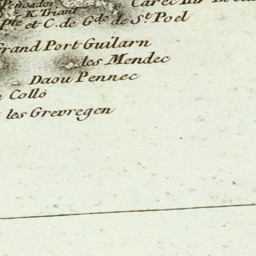 K. Triant
Pte et C. de Gde de St Poel
Grand Port Guilarn
les Mendec
Daou Pennec
Colló
les Grevregen